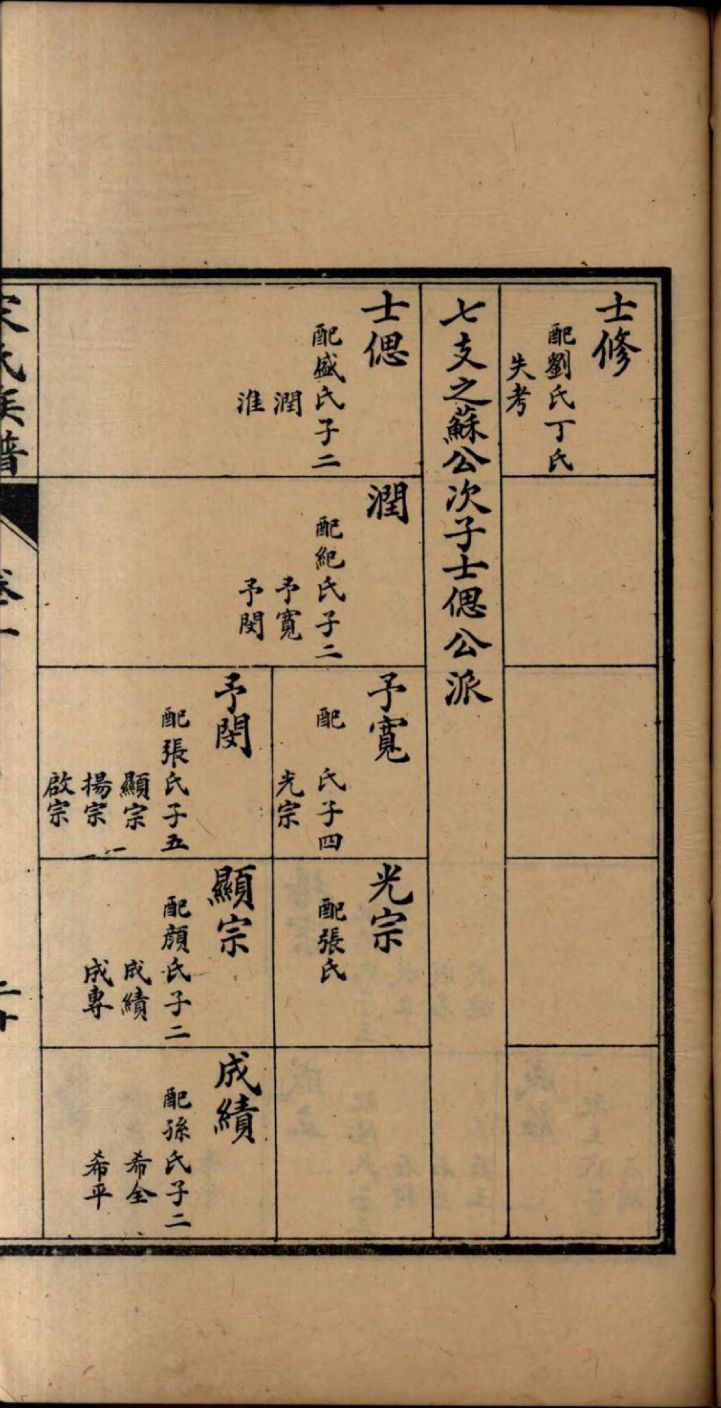 士修
配劉氏丁氏
失考
七支之蘇公次子士偲公派
士偲
配盛氏子二
潤
淮
潤
配紀氏子二
予寬
予閔
予寬
配 氏子四
光宗
予閔
配張氏子五
顯宗
揚宗
啟宗
光宗
配張氏
顯宗
配顏氏子二
成績
成專
成績
配孫氏子二
希全
希平
宋氏族譜
卷一
二十